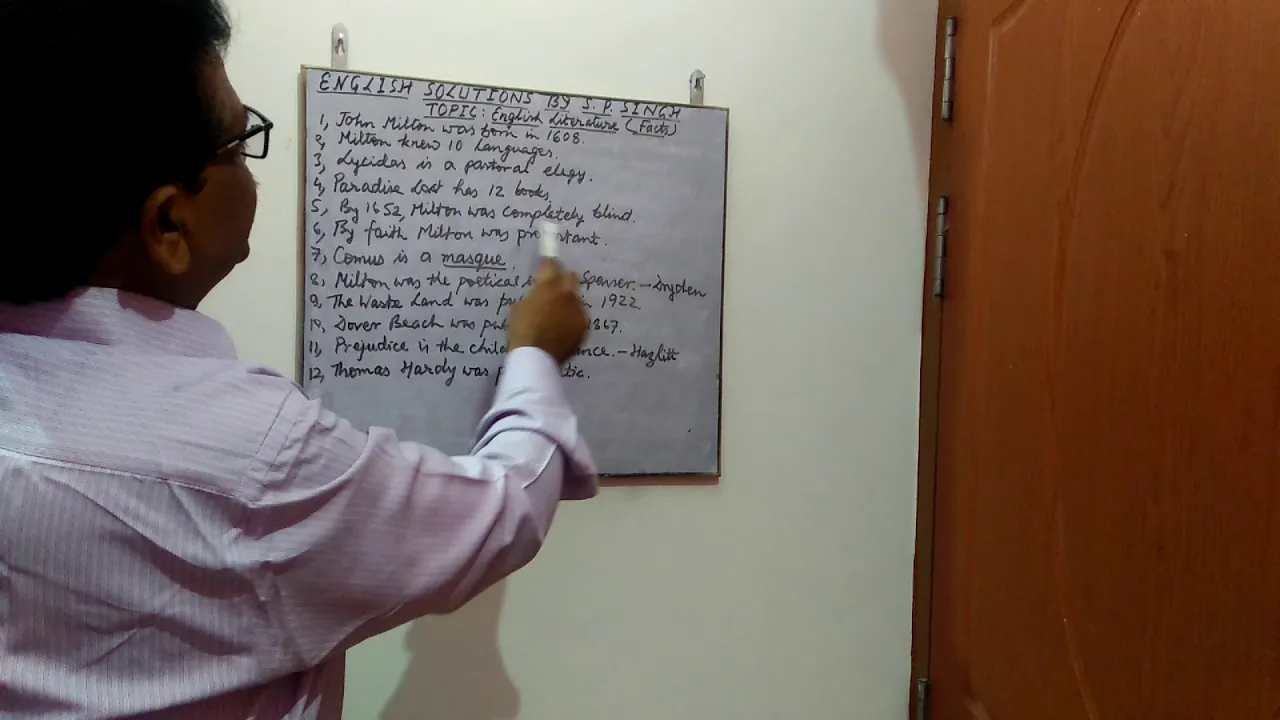 ENGLISH SOLUTIONS BY S. P. SINGH
TOPIC: English Literature (Facts)
1, John Milton was born in 1608.
2, Milton knew 10 Languages.
3, Lycidas is a pastoral elegy.
4, Paradise Lost has 12 books.
5, By 1652, Milton was completely blind.
6, By faith Milton was protestant.
7, Comus is a masque.
8, Milton was the poetical Spenser. - Dryden
9, The Waste Land was in 1922
10, Dover Beach was 1867.
11, Prejudice is the child - Hazlitt
12, Thomas Hardy was